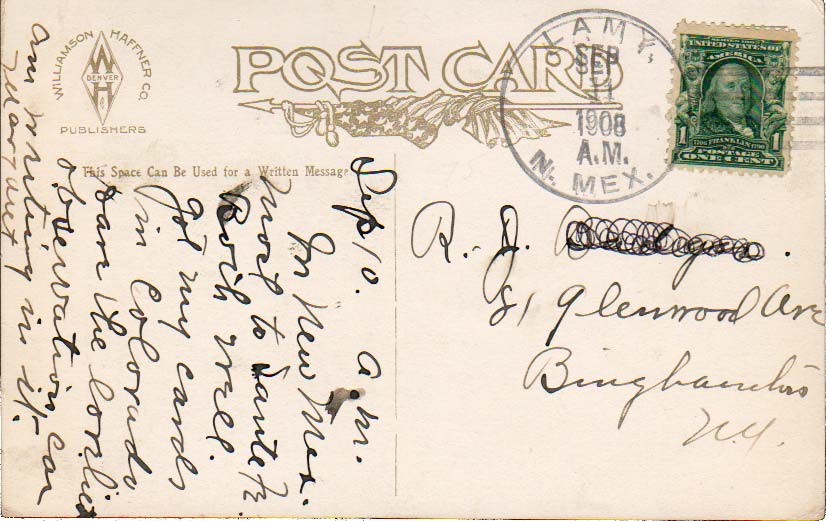 WILLIAMSON HAFFNER CO.
W
DENVER
H
PUBLISHERS
POST CARD
This Space Can Be Used for a Written Message
LAMY,
SEP
11
1908
A.M.
N. MEX.
SERIES 1902
UNITED STATES OF
AMERICA
1 1
1706 FRANKLIN 1790
POSTAGE
ONE CENT
Sep 10. a.m.
In New Mex.
next to Santa Fe.
Both well.
got my cards
in Colorado
the
observation car
am writing in it.
R. J.
81 Glenwood Ave
Binghamton
N.Y.